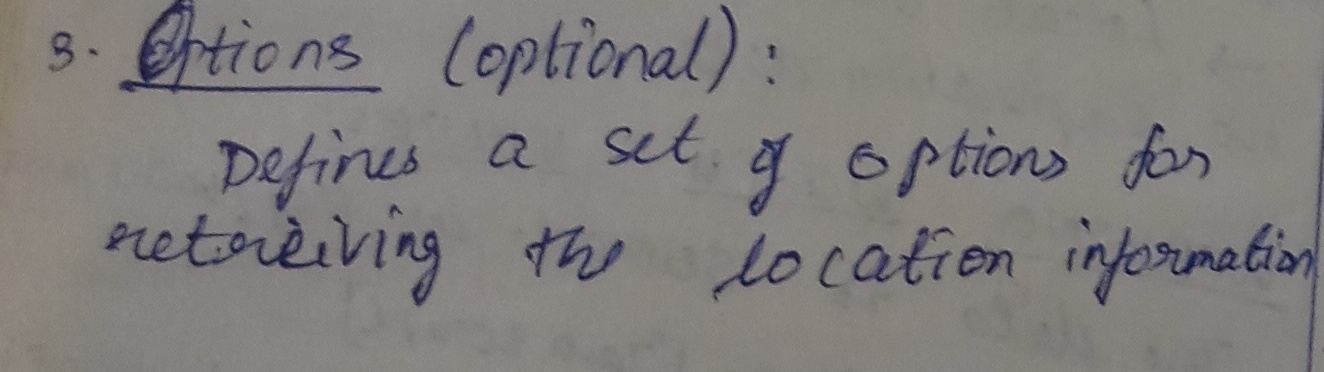 3. Options (optional):
Defines a set of options for
retoreiving the location information